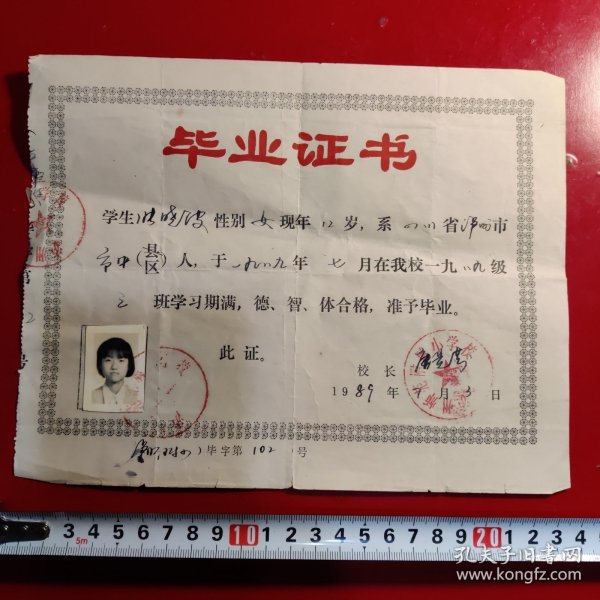 毕业证书
学生 性别女现年12岁,系四川省泸州市
市中(县区)人,于一九八九年七月在我校一九八九级
2班学习期满,德、智、体合格,准予毕业。
此证。
校长
1989年7月3日
毕字第102号
3 4 5 6 7 8 9 10 1 2 3 4 5 6 7 8 9 20 1 2 3
5m
孔夫子旧书网
www.kongfz.com